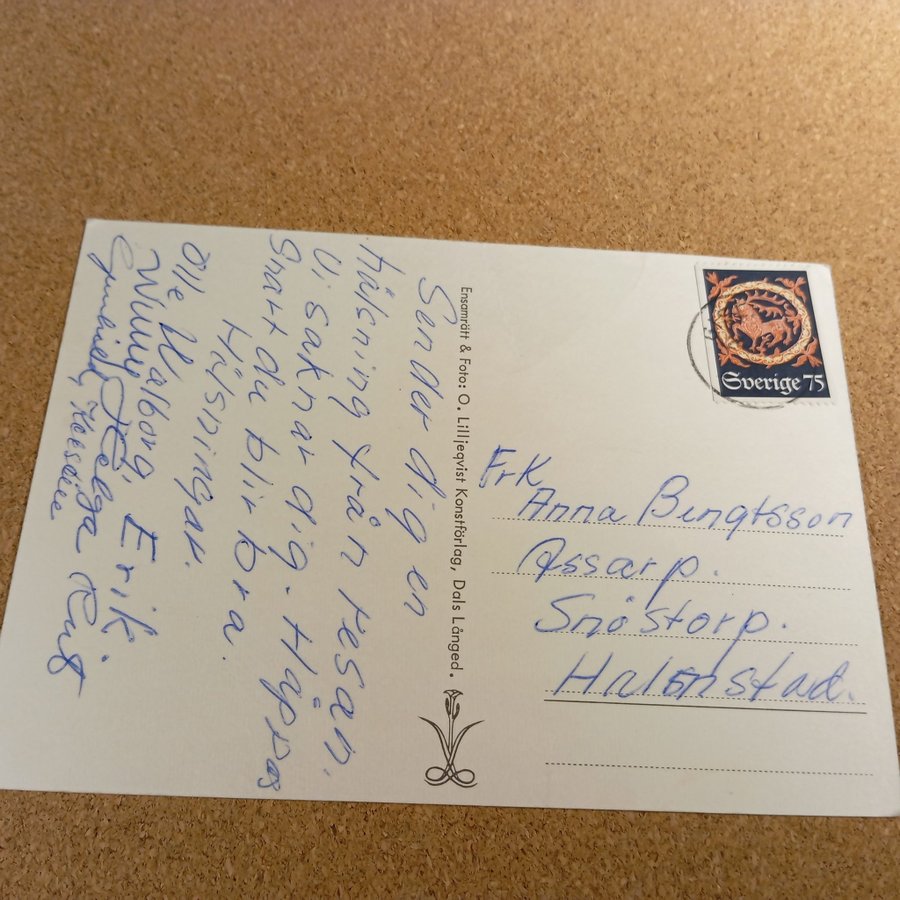 Sender dig en
Hälsning från resan.
Vi saknar dig. Hopsas
Snart du blir bra.
Hälsningar.
Olle U.
Wallborg, Erik
Helga Ruit
Ensamrätt & Foto: O. Lilljeqvist Konstförlag, Dals Långed.
Sverige 75
Frk
Anna Bengtsson
Assarp.
Snöstorp.
Halmstad.